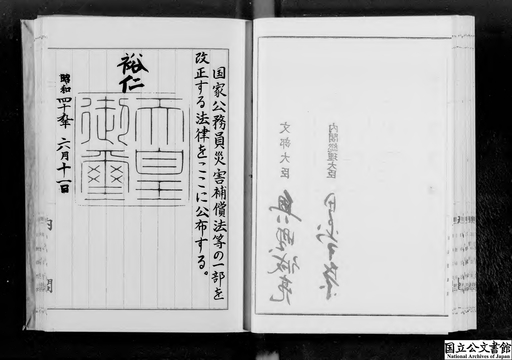 国家公務員災害補償法等の一部を
改正する法律をここに公布する。
裕仁
天皇
御璽
昭和四十九年六月十一日
内閣
内閣総理大臣
文部大臣
国立公文書館
National Archives of Japan